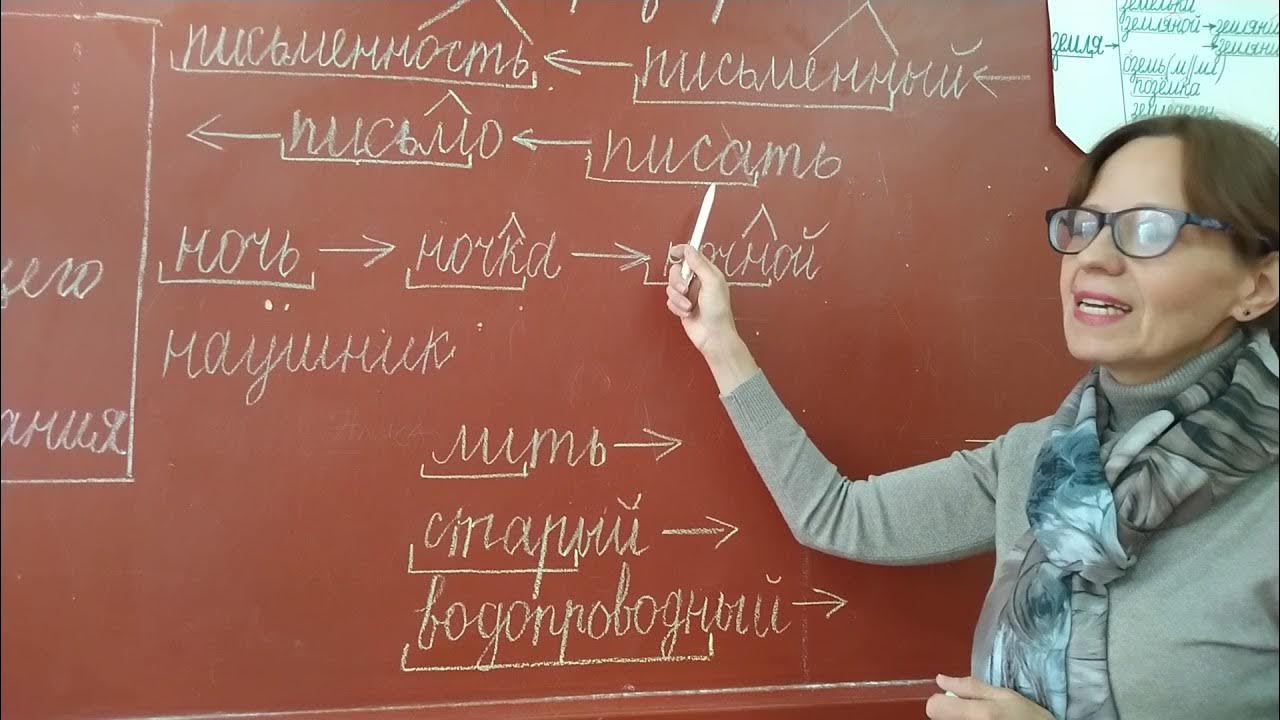 письменность ← письменный ←
← письмо ← писать
ночь → ночка → ночной
наушник
лить →
старый →
водопроводный →
щего
ания
земельки
земляной →
земля →
поземка